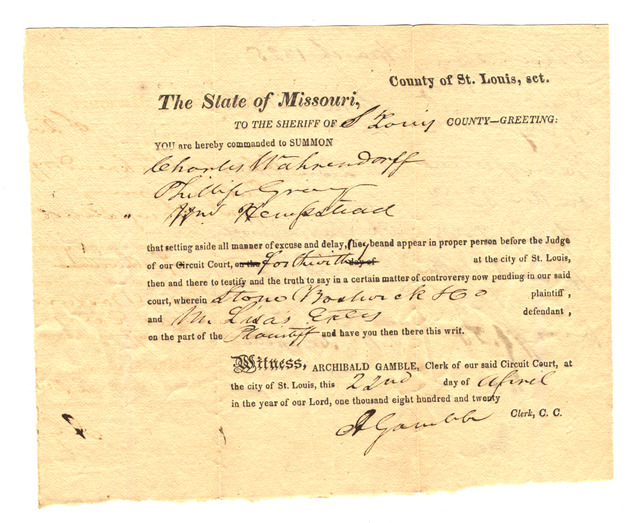 County of St. Louis, sct.
The State of Missouri,
TO THE SHERIFF OF St Louis COUNTY—GREETING:
YOU are hereby commanded to SUMMON
Charles Wahrendorff
Phillip Gray
" Wm Hempstead
that setting aside all manner of excuse and delay, they be and appear in proper person before the Judge
of our Circuit Court, on the forthwith day of at the city of St. Louis,
then and there to testify and the truth to say in a certain matter of controversy now pending in our said
court, wherein Stone Bostwick & Co plaintiff,
and M Lisa's Exers defendant,
on the part of the Plaintiff and have you then there this writ.
Witness, ARCHIBALD GAMBLE, Clerk of our said Circuit Court, at
the city of St. Louis, this 22nd day of April
in the year of our Lord, one thousand eight hundred and twenty
A Gamble Clerk, C. C.